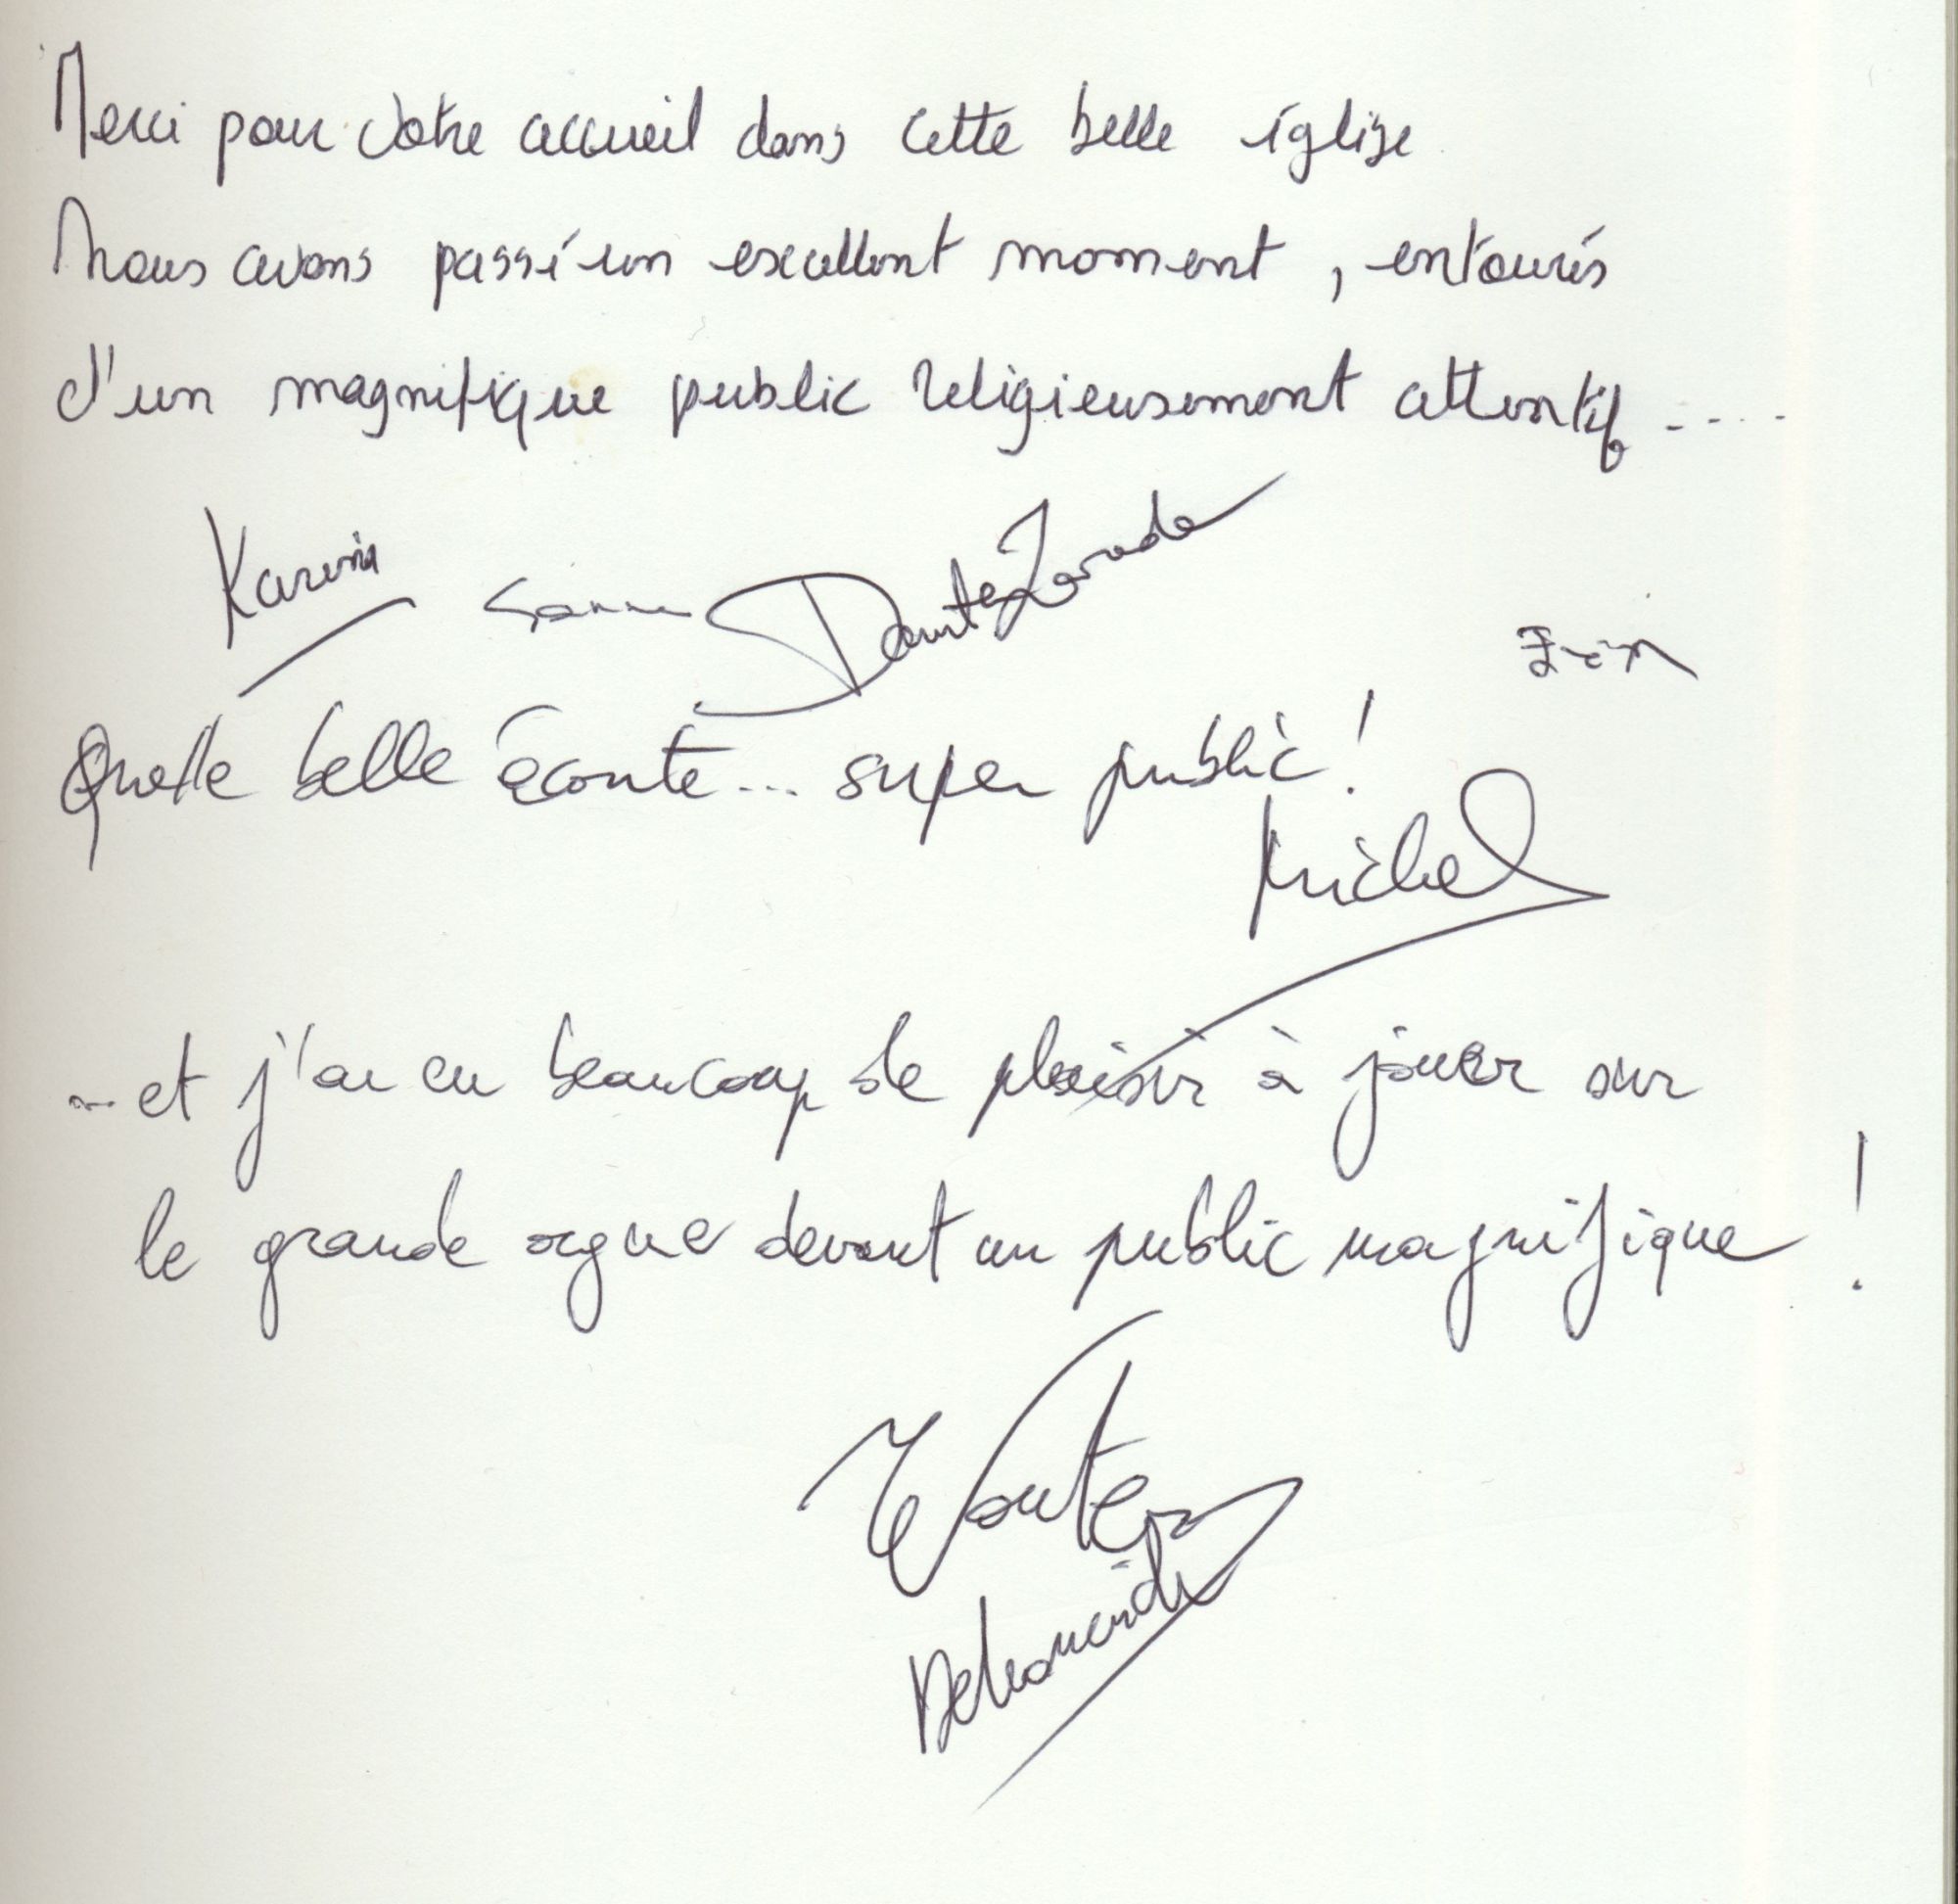 Merci pour votre accueil dans cette belle église
Nous avons passé un excellent moment, entourés
d'un magnifique public religieusement attentif ....
Karine
Quelle belle écoute... super public !
Michel
... et j'ai eu beaucoup de plaisir à jouer sur
le grande orgue devant un public magnifique !
Wouter